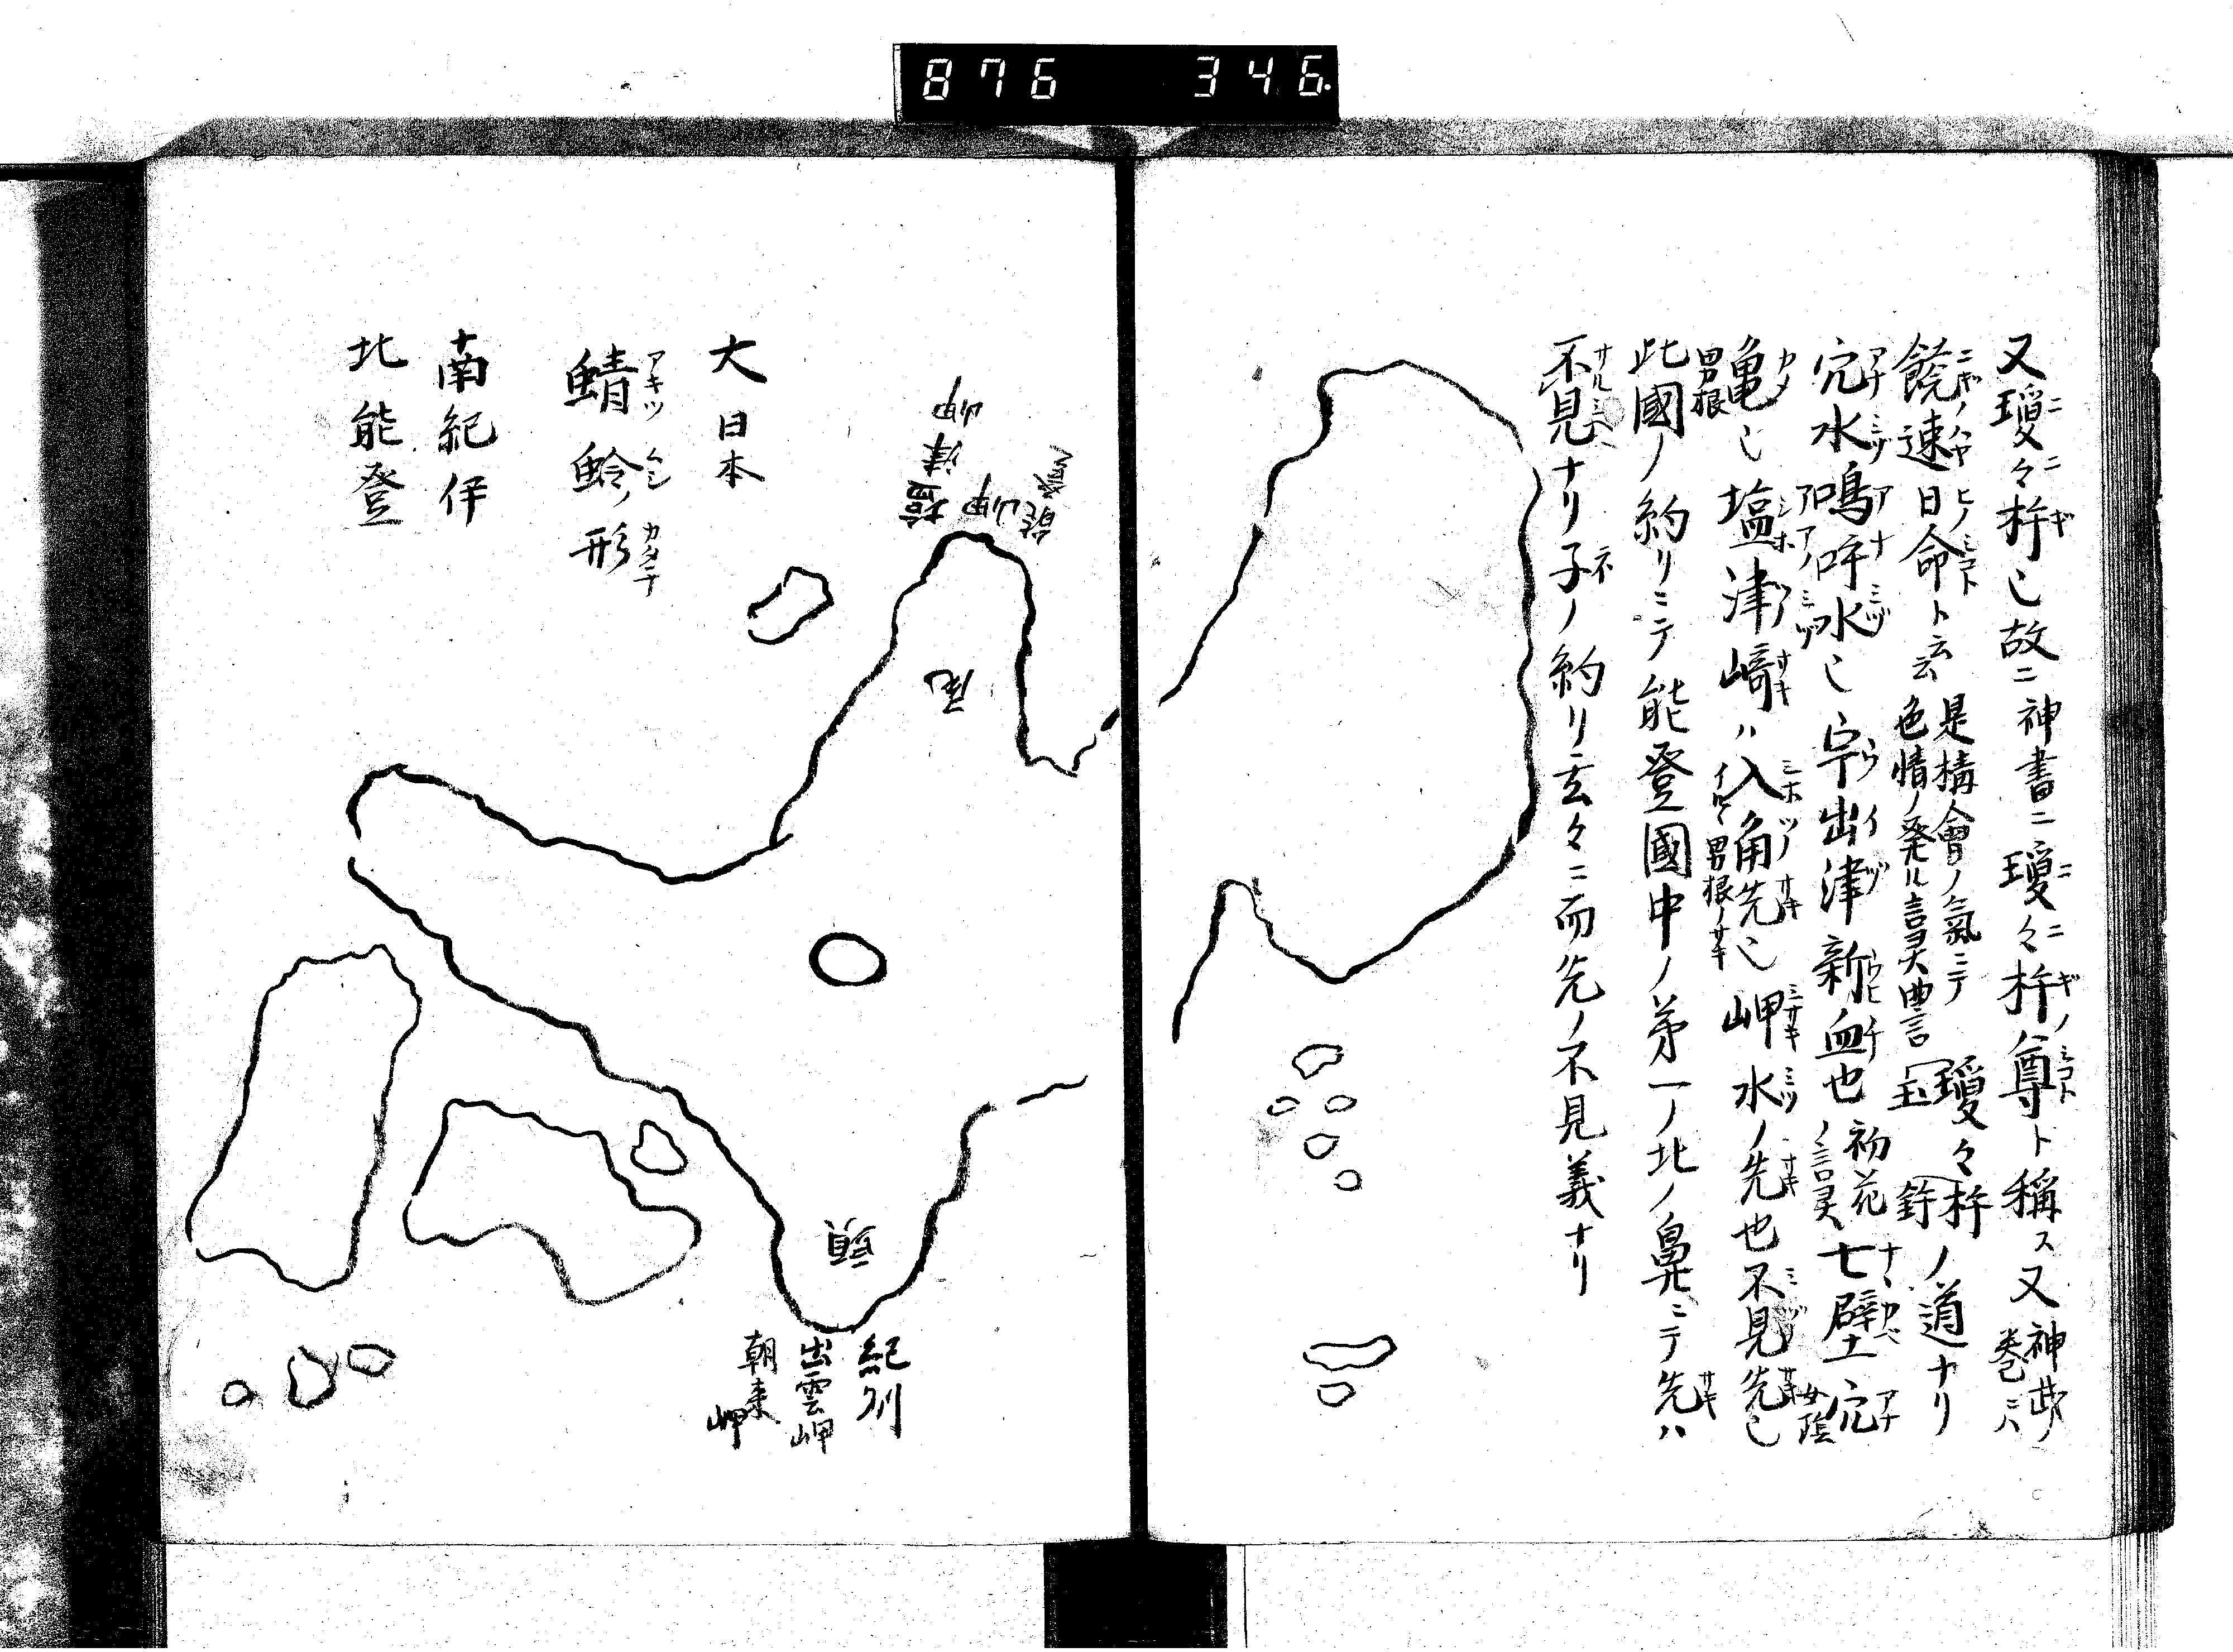 876 346.
又瓊々杵也故ニ神書ニ瓊々杵尊ト称ス又神武ノ巻ニハ
饒速日命ト云云 是構會ノ氣ニテ色情ノ発ル言灵曲言 瓊々杵ノ道ナリ
穴水鳴呼水也 宇出津新血也 初花ノ言灵 七壁穴 女陰
亀也塩津﨑ハ入角先也 男根ノサキ 岬水ノ先也不見先也
男根
此國ノ約リニテ能登國中ノ第一ノ北ノ鼻ニテ先ハ
不見ナリ子ノ約リ云々ニ而先ノ不見義ナリ
能登
岬
塩津
岬
尾
大日本
蜻蛉ノ形
アキツムシ カタチ
南紀伊
北能登
頭
紀州
出雲岬
朝来岬